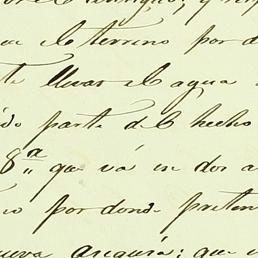 en el terreno por d
te llevar el agua
ido parte del hecho
8ª que vá en dos a
no por donde preten
ueva Acequia; que